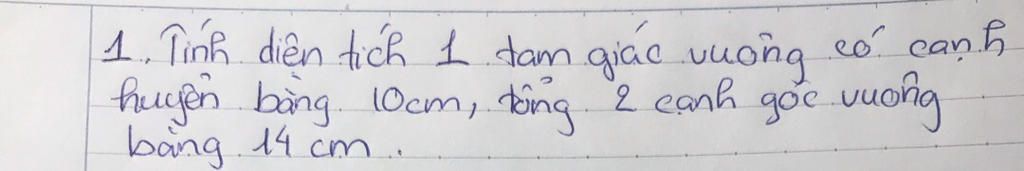 1. Tính diện tích 1 tam giác vuông có cạnh
huyền bằng 10cm, tổng 2 cạnh góc vuông
bằng 14 cm.